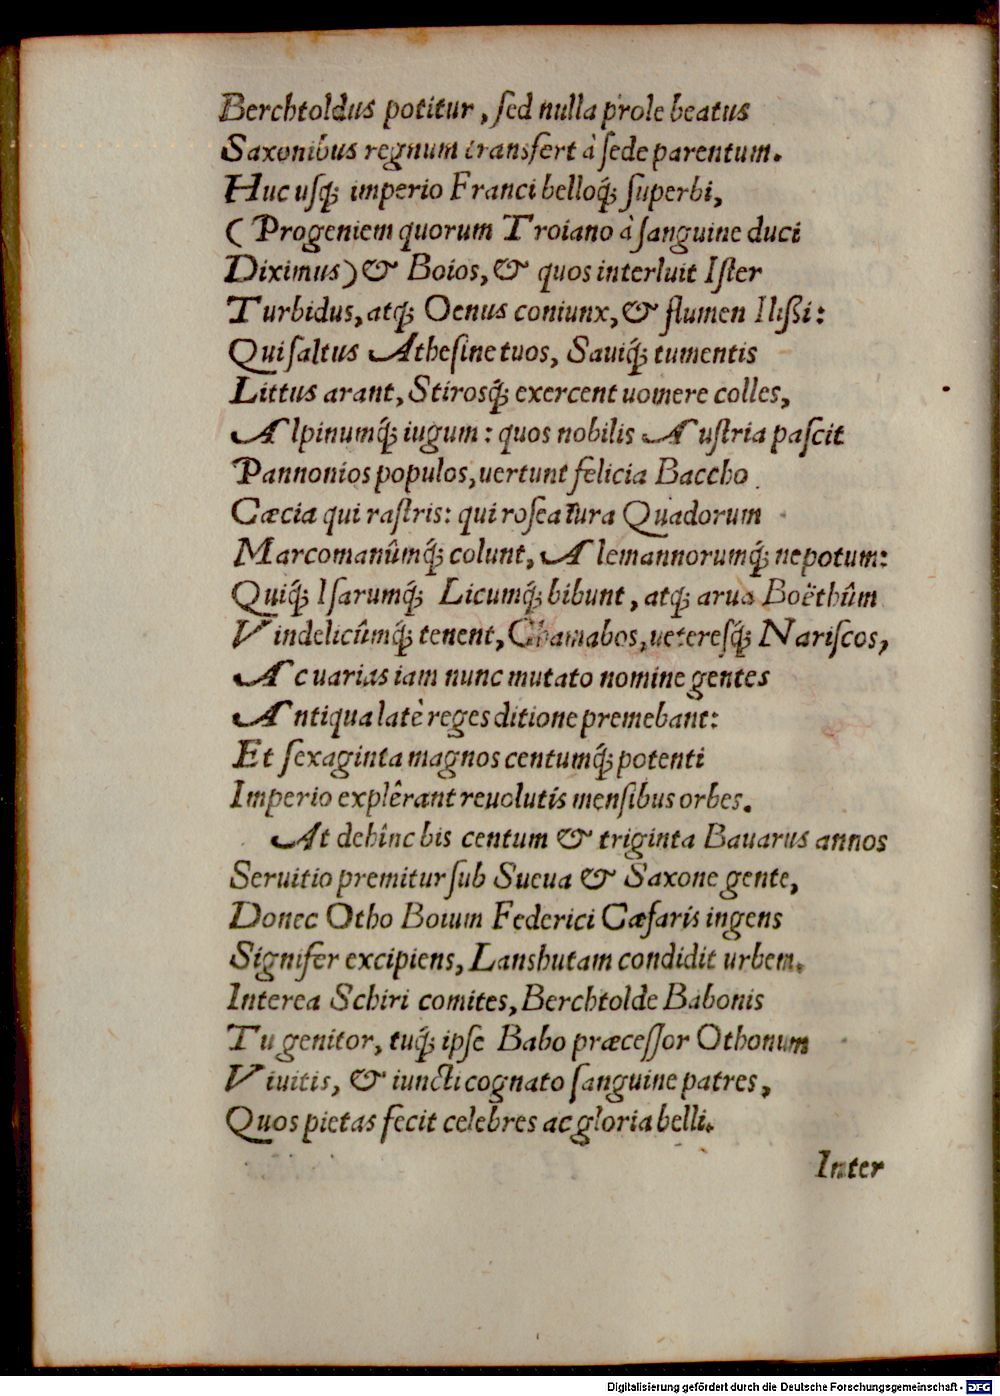 Berchtoldus potitur, ſed nulla prole beatus
Saxonibus regnum transfert à ſede parentum.
Huc uſq́; imperio Franci belloq́; ſuperbi,
(Progeniem quorum Troiano à ſanguine duci
Diximus) & Boios, & quos interluit Iſter
Turbidus, atq́; Oenus coniunx, & flumen Ilißi:
Qui ſaltus Atheſine tuos, Sauiq́; tumentis
Littus arant, Stirosq́; exercent uomere colles,
Alpinumq́; iugum: quos nobilis Auſtria paſcit
Pannonios populos, uertunt felicia Baccho
Cæcia qui raſtris: qui roſea rura Quadorum
Marcomanûmq́; colunt, Alemannorumq́; nepotum:
Quiq́; Iſarumq́; Licumq́; bibunt, atq́; arua Boëthûm
Vindelicûmq́; tenent, Chamabos, uetereſq́; Nariſcos,
Acuarias iam nunc mutato nomine gentes
Antiqua latè reges ditione premebant:
Et ſexaginta magnos centumq́; potenti
Imperio explêrant reuolutis menſibus orbes.
At dehînc bis centum & triginta Bauarus annos
Seruitio premitur ſub Sueua & Saxone gente,
Donec Otho Boium Federici Cæſaris ingens
Signifer excipiens, Lanshutam condidit urbem.
Interea Schiri comites, Berchtolde Babonis
Tu genitor, tuq́; ipſe Babo præceſſor Othonum
Viuitis, & iuncti cognato ſanguine patres,
Quos pietas fecit celebres ac gloria belli.
Inter
Digitalisierung gefördert durch die Deutsche Forschungsgemeinschaft - DFG